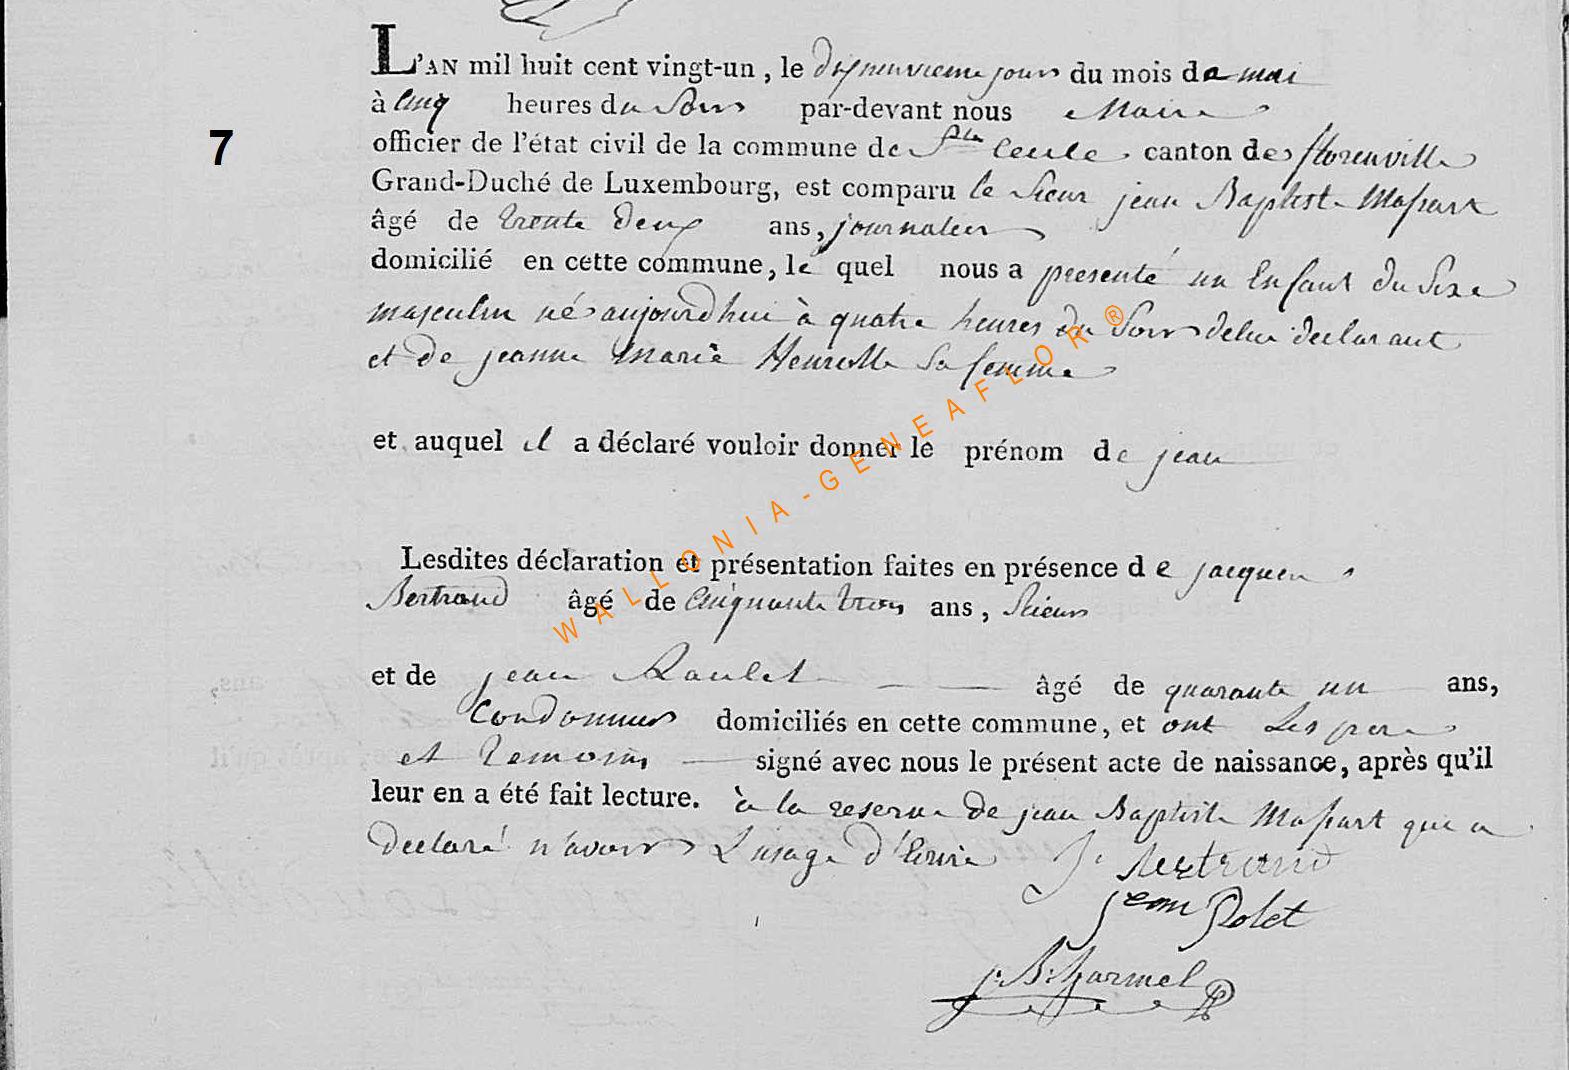 L'AN mil huit cent vingt-un, le dixneuvieme jour du mois de mai
à cinq heures du soir par-devant nous Maire
officier de l'état civil de la commune de Ste Cecile canton de florenville
7
Grand-Duché de Luxembourg, est comparu le sieur jean Baptiste Massart
âgé de trente deux ans, journalier
domicilié en cette commune, le quel nous a presenté un Enfant du Sexe
masculin né aujourd'hui à quatre heures du soir de lui declarant
et de jeanne marie Henriette sa femme
et auquel il a déclaré vouloir donner le prénom de jean
Lesdites déclaration et présentation faites en présence de jacques
Bertrand âgé de cinquante trois ans, scieur
et de jean Raulet âgé de quarante un ans,
Cordonnier domiciliés en cette commune, et ont Les pere
et temoins signé avec nous le présent acte de naissance, après qu'il
leur en a été fait lecture. à la reserve de jean Baptiste Massart qui a
declaré n'avoir L'usage d'Ecrire J. Bertrand
jean Rolet
j: B: harmel
WALLONIA-GENEAFLOR ®